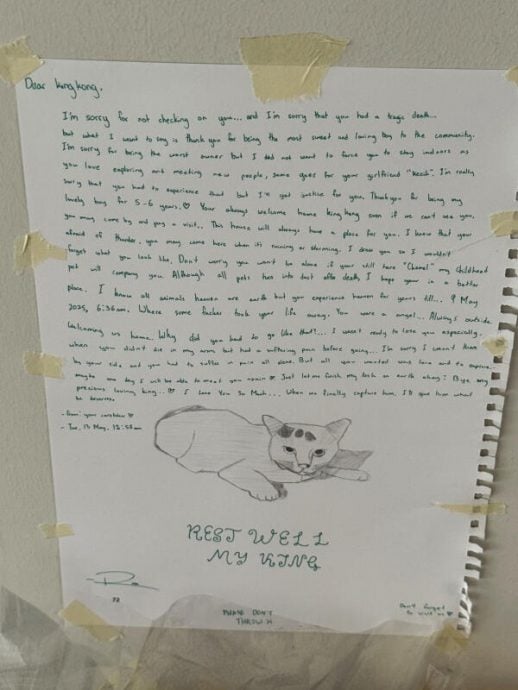 Dear Kingkong,
I'm sorry for not checking on you... and I'm sorry that you had a tragic death...
but what I want to say is thank you for being the most sweet and loving boy to the community.
I'm sorry for being the worst owner but I did not want to force you to stay indoors as
you love exploring and meeting new people, same goes for your girlfriend I'm really
sorry that you had to experience that but I'll get justice for you. Thankyou for being my
lovely boy for 5-6 years. ♡ Your always welcome home kingkong even if we can't see you,
you may come by and pay a visit.. This house will always have a place for you. I know that your
afraid of thunder, you may come here when it's raining or storming. I drew you so I wouldn't
forget what you look like. Don't worry you won't be alone if your still here "Chanel" my childhood
pet will company you. Although all pets into dust after death, I hope your in a better
place. I know all animals heaven are earth but you experience heaven for years till... 9 May
2025, 6:36am. Where some fucker took your life away. You were a angel... Always outside
welcoming us home. Why did you had to go like that?... I wasn't ready to lose you especially,
when you didn't die in my arms but had a suffering pain before going... I'm sorry I wasn't there
by your side and you had to suffer in pain all alone. But all you wanted was love and to explore.
maybe one day I will be able to meet you again ♡ Just let me finish my task on earth okay? Bye my
precious loving king.. ♡ I Love You So Much... When we finally capture him, I'll give him what
he deserves
- from your ♡
- Tue, 13 May, 12:55am
REST WELL
MY KING
PLEASE DON'T
THROW IT
Don't forget
to visit us ♡